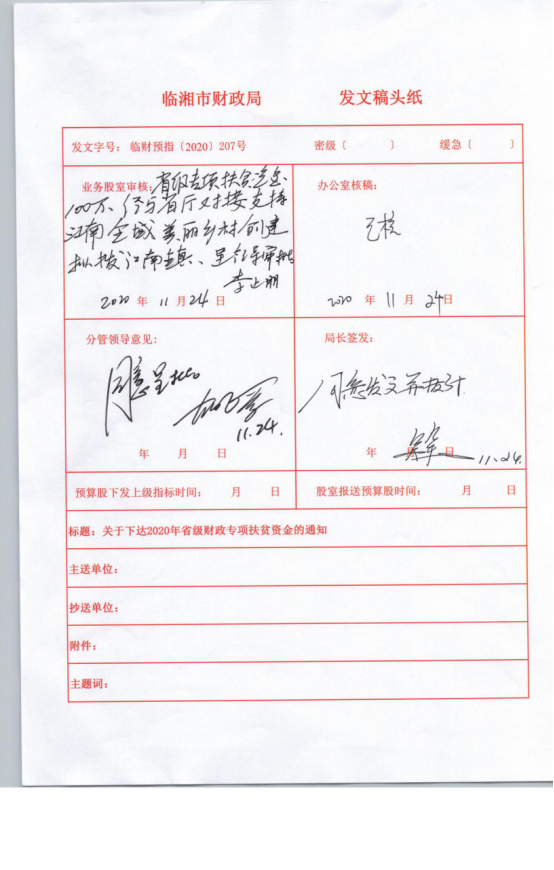 临湘市财政局 发文稿头纸
发文字号：临财预指〔2020〕207号 密级〔 〕 缓急〔 〕
业务股室审核：省级专项扶贫资金
100万、经与省厅对接支持
江南全域美丽乡村创建
拟拨江南镇、呈领导审批
2020年11月24日
办公室核稿：
已核
2020年11月24日
分管领导意见：
同意呈批
11.24.
年 月 日
局长签发：
同意发文并拨付
年 月 日 11.24.
预算股下发上级指标时间： 月 日
股室报送预算股时间： 月 日
标题：关于下达2020年省级财政专项扶贫资金的通知
主送单位：
抄送单位：
附件：
主题词：